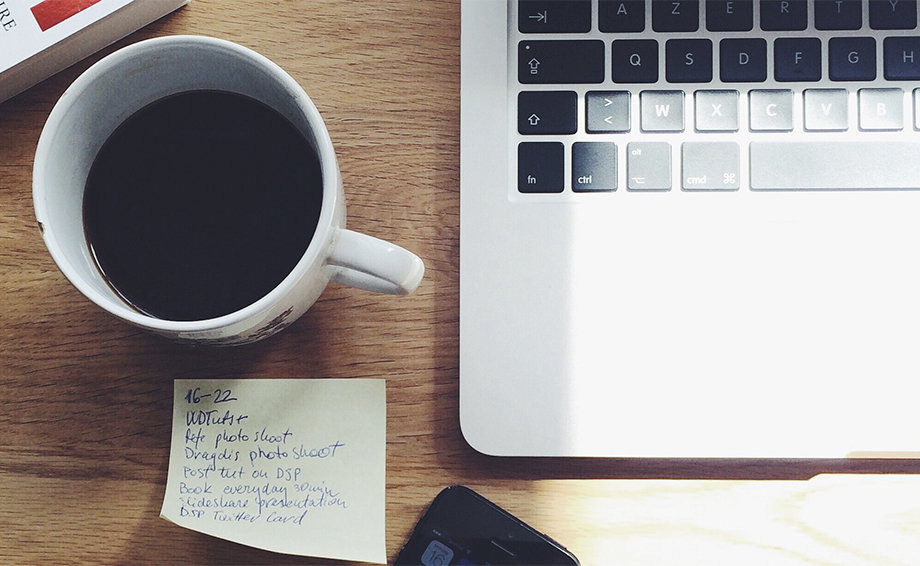 IRE
A Z E R T Y
Q S D F G H
> < W X C V B
fn ctrl alt cmd
16-22
WDTuts+
photo shoot
Dragdis photoshoot
Post tut on DSP
Book everyday 30min
Slideshare presentation
DSP Twitter Card
16